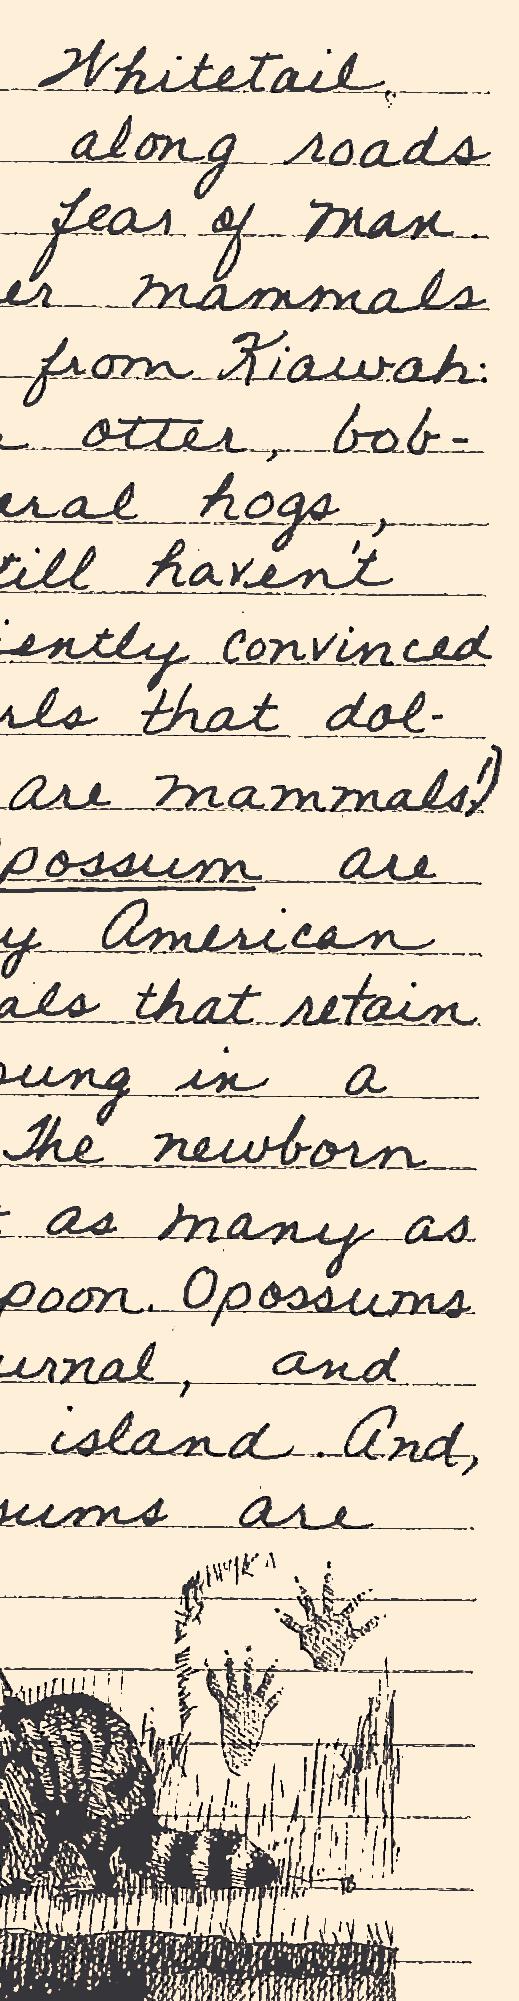 Whitetail
along roads
fear of man.
er mammals
from Kiawah:
otter, bob-
eral hogs,
till haven't
iently convinced
rls that dol-
are mammals!)
possum are
y American
als that retain
oung in a
The newborn
t as many as
poon. Opossums
urnal, and
island. And,
sums are